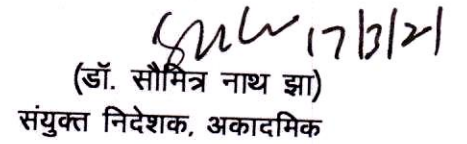 17/3/21
(डॉ. सौमित्र नाथ झा)
संयुक्त निदेशक, अकादमिक